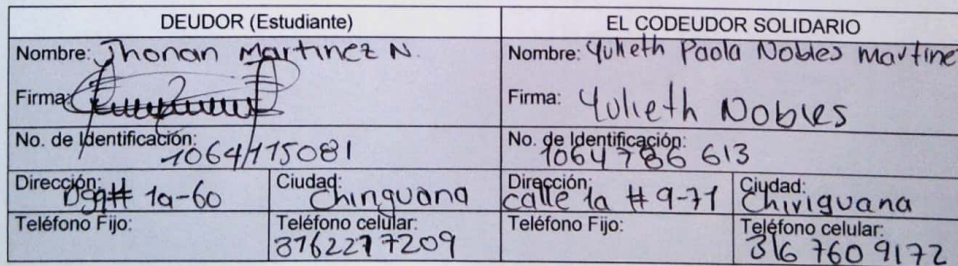 DEUDOR (Estudiante)
EL CODEUDOR SOLIDARIO
Nombre: Jhonan Martinez N.
Nombre: Yulieth Paola Nobles Martine
Firma:
Firma: Yulieth Nobles
No. de Identificación: 1064115081
No. de Identificación: 1064786613
Dirección: # 1a-60
Ciudad: Chiriguana
Dirección: calle 1a # 9-71
Ciudad: Chiriguana
Teléfono Fijo:
Teléfono celular: 3162277209
Teléfono Fijo:
Teléfono celular: 316 760 9172